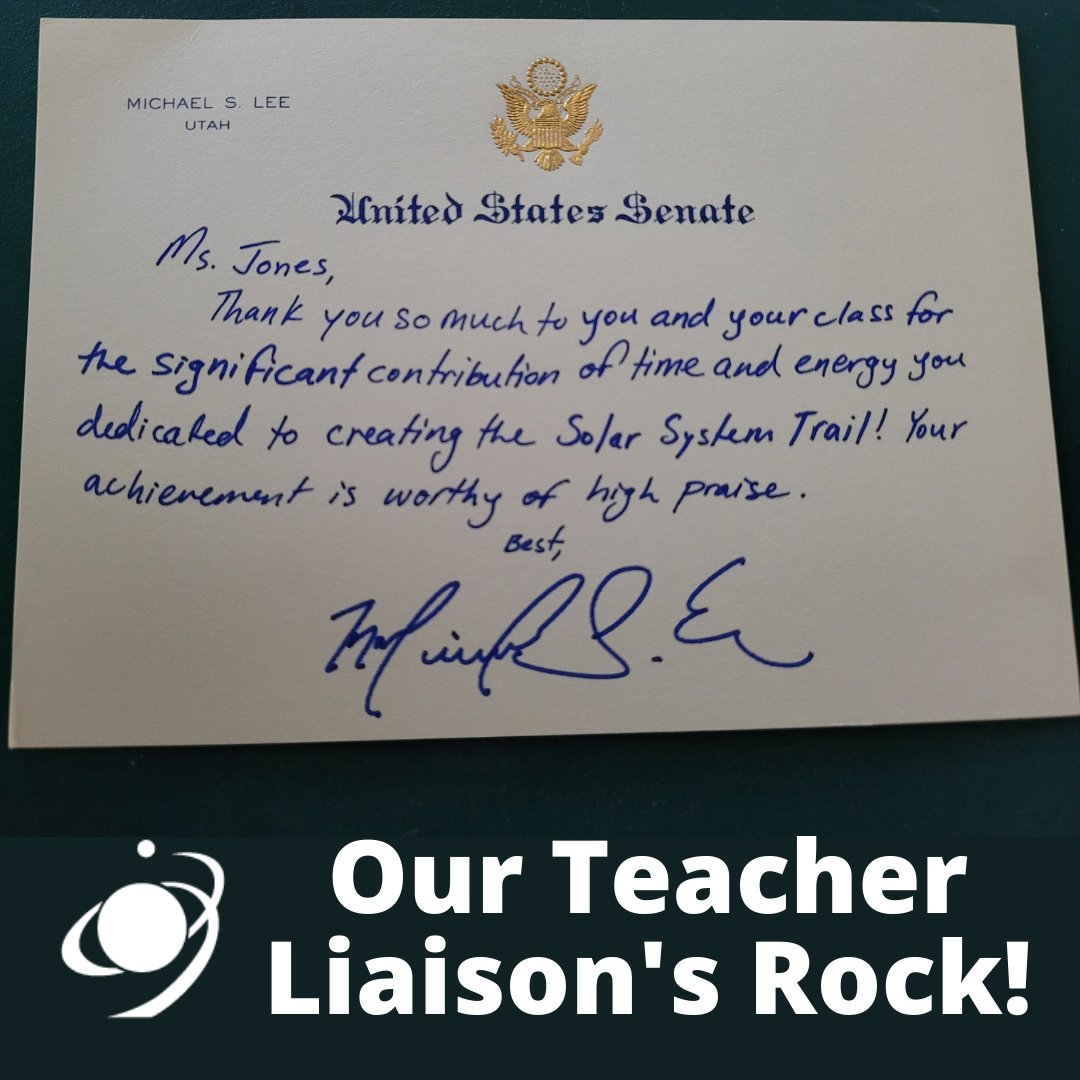 MICHAEL S. LEE
UTAH
United States Senate
Ms. Jones,
Thank you so much to you and your class for
the significant contribution of time and energy you
dedicated to creating the Solar System Trail! Your
achievement is worthy of high praise.
Best,
Our Teacher
Liaison's Rock!